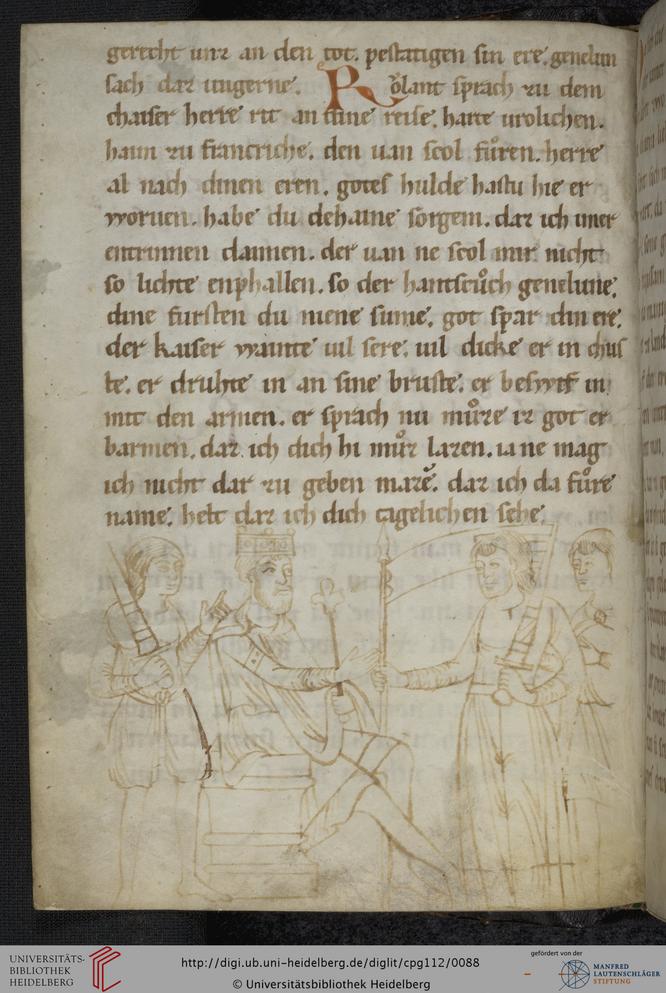 gerecht unz an den tot. pestatigen sin ere. genelun
sach daz ungerne. Rͦolant sprach zu dem
chaiser herre rit an dine reise. harte urolichen.
haim zu francriche. den uan scol fůren. herre
al nach dinen eren. gotes hulde hastu hie er
woruen. habe du dehaine sorgem. daz ich imer
entrinnen daunen. der uan ne scol mir nicht
so lichte enphallen. so der hantscůch genelune.
dine fursten du niene sume. got spar din ere.
der kaiser wainte uil sere. uil dicke er in chus
te. er druhte in an sine bruste. er besweif in
mit den armen. er sprach nu můze iz got er
barmen. daz ich dich hi můz lazen. ia ne mag
ich nicht dar zu geben maze. daz ich da fůre
name. helt daz ich dich tagelichen sehe.
UNIVERSITÄTS-
BIBLIOTHEK
HEIDELBERG
http://digi.ub.uni-heidelberg.de/diglit/cpg112/0088
© Universitätsbibliothek Heidelberg
gefördert von der
MANFRED
LAUTENSCHLÄGER
STIFTUNG